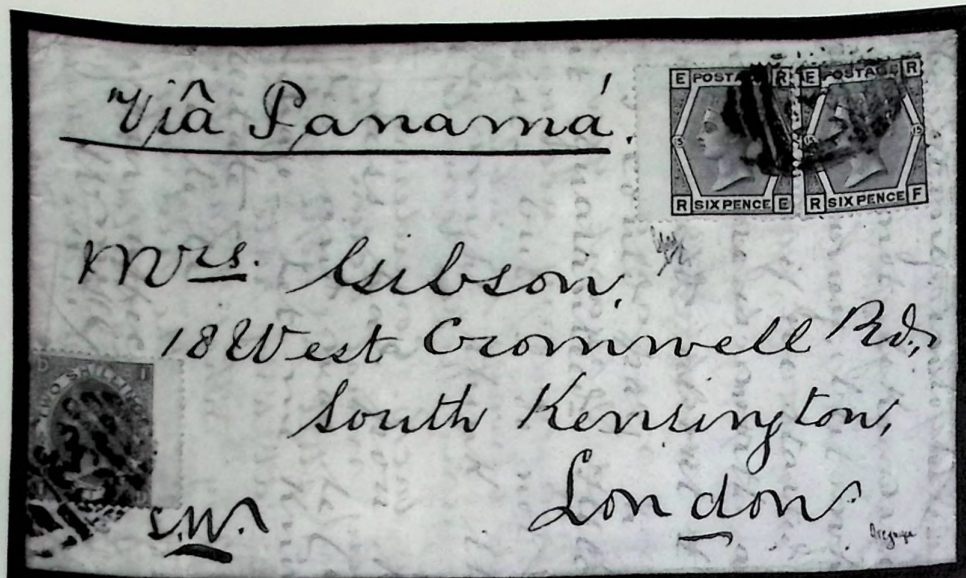 Viâ Panamá.
E POSTAGE R
E POSTAGE R
R SIX PENCE E
R SIX PENCE F
Mrs. Gibson,
18 West Cromwell Rd.,
South Kensington,
London
S.W.
TWO SHILLINGS